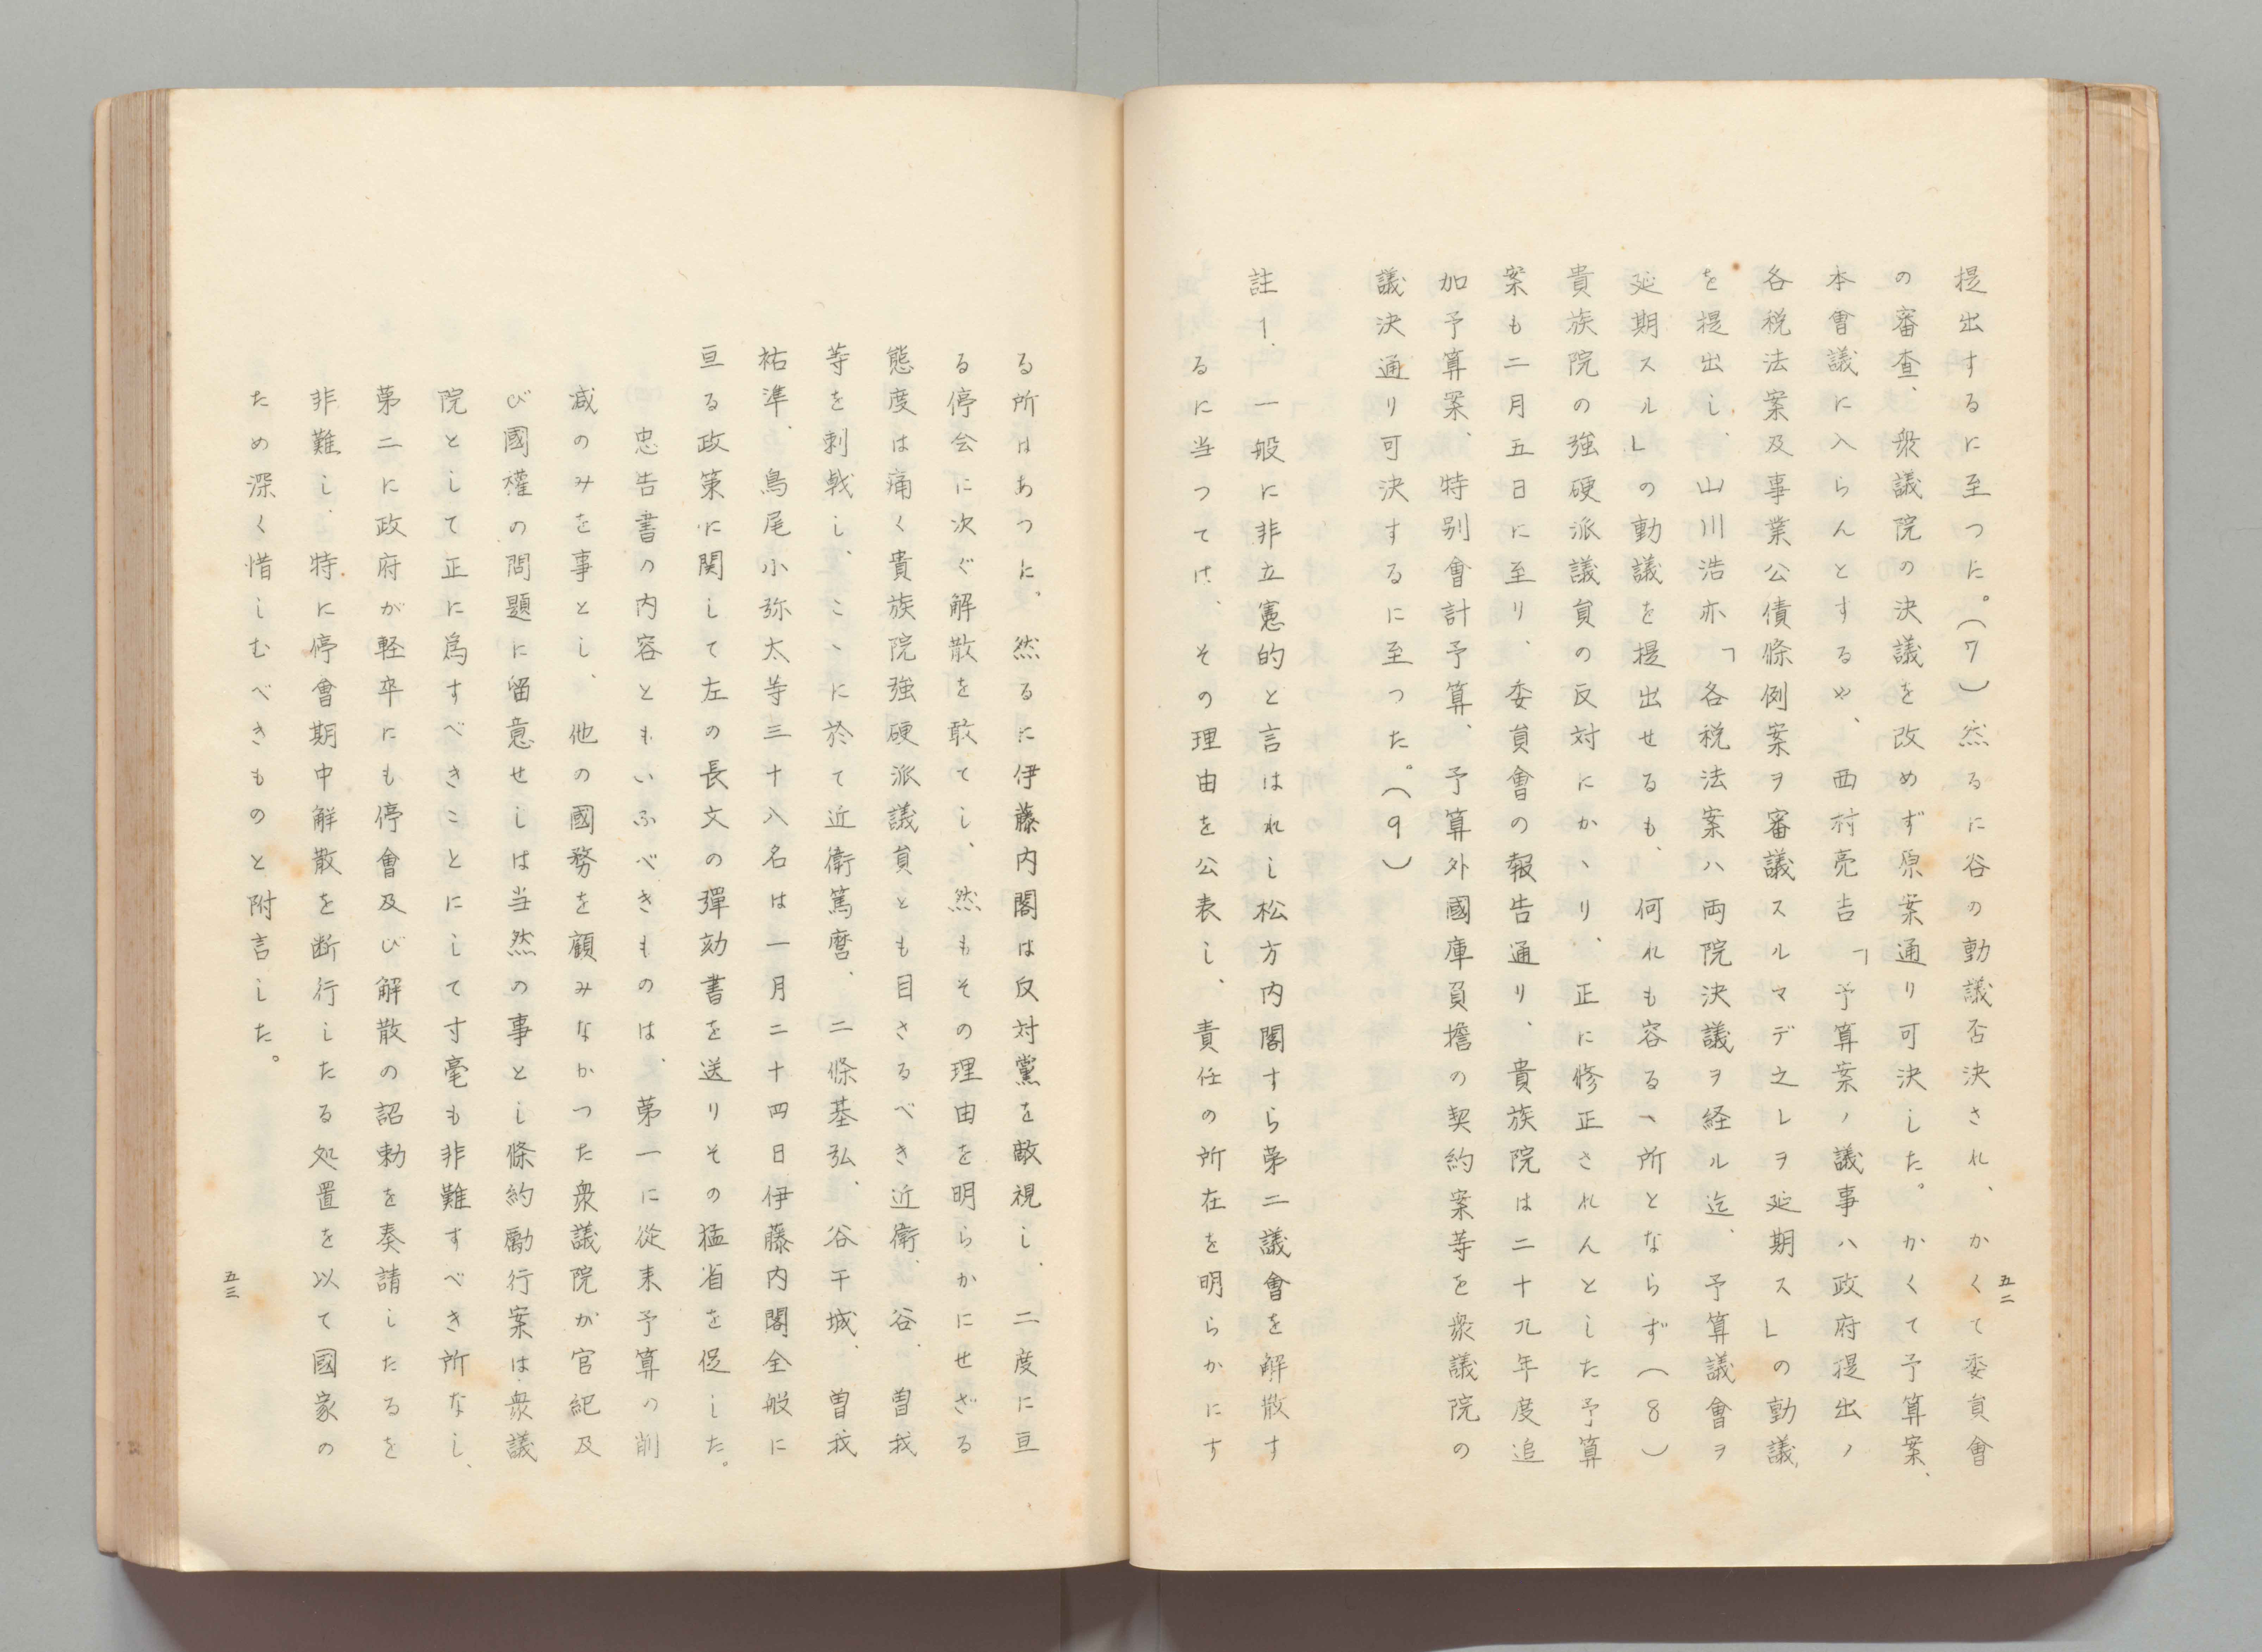 五二
提出するに至つた。（7）然るに谷の動議否決され、かくて委員會
の審査、衆議院の決議を改めず原案通り可決した。かくて予算案、
本會議に入らんとするや、西村亮吉「予算案ノ議事ハ政府提出ノ
各税法案及事業公債條例案ヲ審議スルマデ之レヲ延期ス」の動議、
を提出し、山川浩亦「各税法案ハ両院決議ヲ経ル迄、予算議會ヲ
延期スル」の動議を提出せるも、何れも容るゝ所とならず（8）
貴族院の強硬派議員の反対にかゝり、正に修正されんとした予算
案も二月五日に至り、委員會の報告通り、貴族院は二十九年度追
加予算案、特別會計予算、予算外國庫負擔の契約案等を衆議院の
議決通り可決するに至つた。（9）
註1．一般に非立憲的と言はれし松方内閣すら第二議會を解散す
るに当つては、その理由を公表し、責任の所在を明らかにす
る所はあつた。然るに伊藤内閣は反対黨を敵視し、二度に亘
る停会に次ぐ解散を敢てし、然もその理由を明らかにせざる
態度は痛く貴族院強硬派議員とも目さるべき近衛、谷、曽我
等を刺戟し、こゝに於て近衛篤麿、二條基弘、谷干城、曽我
祐準、鳥尾小弥太等三十八名は一月二十四日伊藤内閣全般に
亘る政策に関して左の長文の彈劾書を送りその猛省を促した。
忠告書の内容ともいふべきものは、第一に從来予算の削
減のみを事とし、他の國務を顧みなかつた衆議院が官紀及
び國權の問題に留意せしは当然の事とし條約勵行案は衆議
院として正に爲すべきことにして寸毫も非難すべき所なし、
第二に政府が軽卒にも停會及び解散の詔勅を奏請したるを
非難し、特に停會期中解散を断行したる処置を以て國家の
ため深く惜しむべきものと附言した。
五三